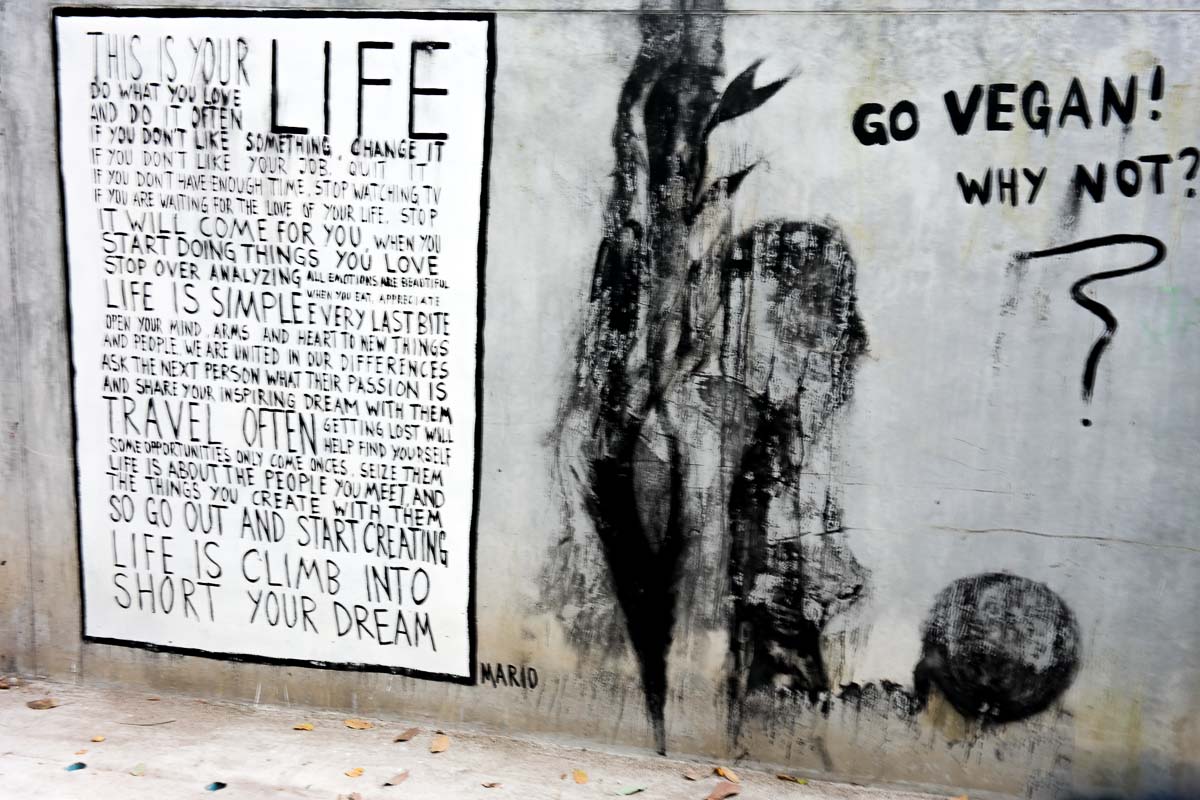 THIS IS YOUR LIFE
DO WHAT YOU LOVE
AND DO IT OFTEN
IF YOU DON'T LIKE SOMETHING, CHANGE IT
IF YOU DON'T LIKE YOUR JOB, QUIT IT
IF YOU DON'T HAVE ENOUGH TIME, STOP WATCHING TV
IF YOU ARE WAITING FOR THE LOVE OF YOUR LIFE, STOP
IT WILL COME FOR YOU, WHEN YOU
START DOING THINGS YOU LOVE
STOP OVER ANALYZING ALL EMOTIONS ARE BEAUTIFUL
LIFE IS SIMPLE WHEN YOU EAT, APPRECIATE
EVERY LAST BITE
OPEN YOUR MIND, ARMS AND HEART TO NEW THINGS
AND PEOPLE, WE ARE UNITED IN OUR DIFFERENCES
ASK THE NEXT PERSON WHAT THEIR PASSION IS
AND SHARE YOUR INSPIRING DREAM WITH THEM
TRAVEL OFTEN GETTING LOST WILL
HELP FIND YOURSELF
SOME OPPORTUNITIES ONLY COME ONCES, SEIZE THEM
LIFE IS ABOUT THE PEOPLE YOU MEET, AND
THE THINGS YOU CREATE WITH THEM
SO GO OUT AND START CREATING
LIFE IS CLIMB INTO
SHORT YOUR DREAM
MARIO
GO VEGAN!
WHY NOT?
?